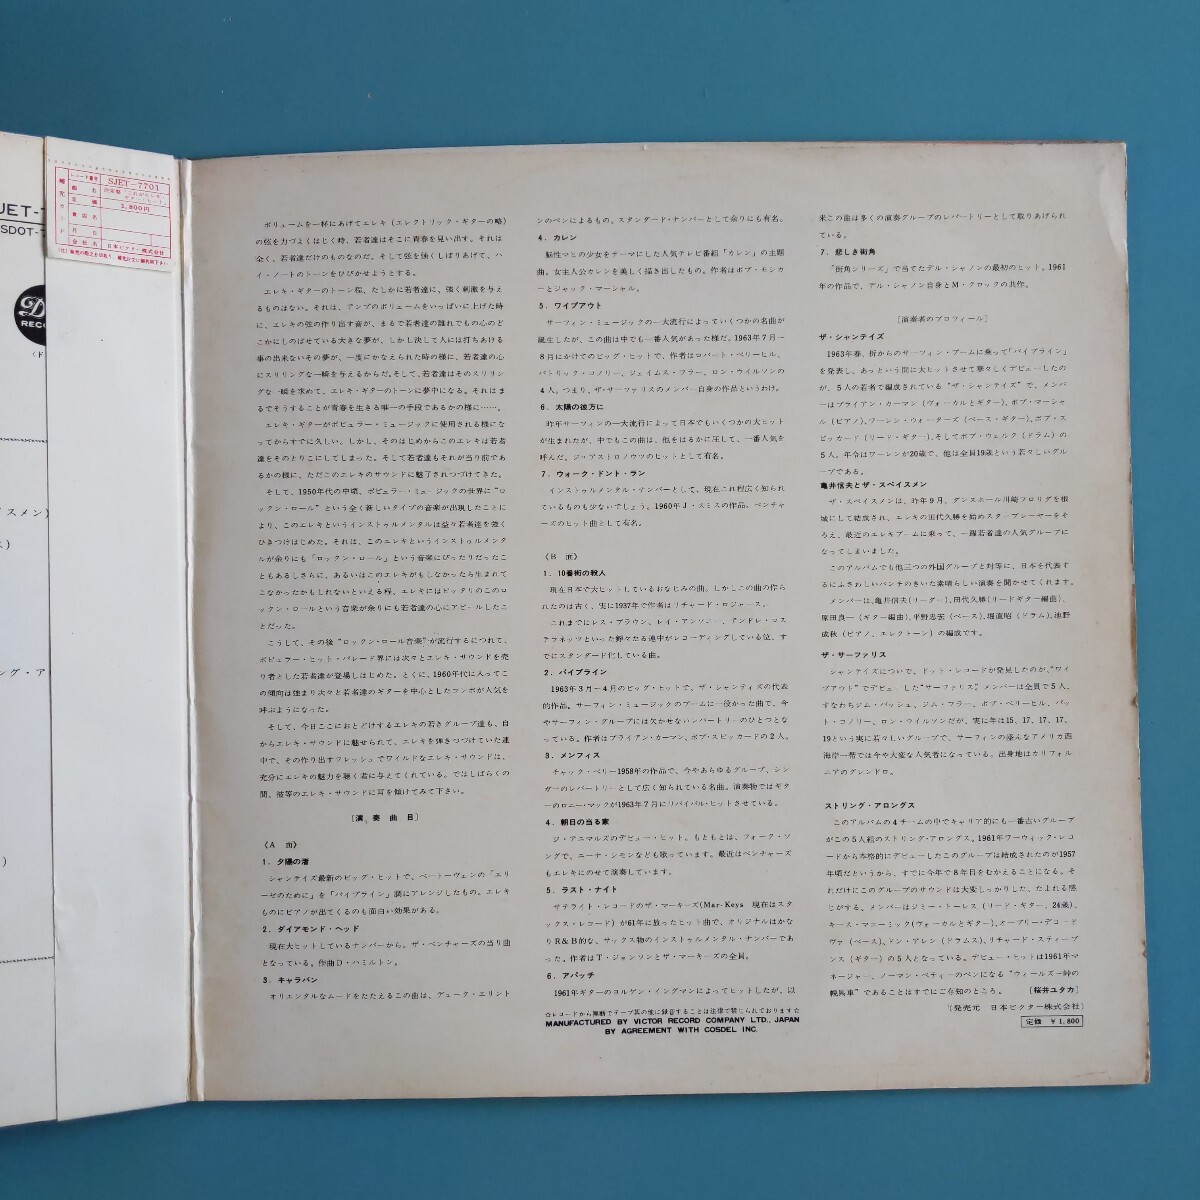 JET-7
SDOT-7
D
RECO
(ド
イスメン)
ス)
ング・ア
)
補充カード
レコード番号 SJET-7701
曲名
定価 1,800円
書店名
月日
会社名 日本ビクター株式会社
ボリュームを一杯にあげてエレキ(エレクトリック・ギターの略)
の弦を力づよくはじく時、若者達はそこに青春を見い出す。それは
全く、若者達だけのものなのだ。そして弦を強くしばりあげて、ハ
イ・ノートのトーンをひびかせようとする。
エレキ・ギターのトーン程、たしかに若者達に、強く刺激を与え
るものはない。それは、アンプのボリュームをいっぱいに上げた時
に、エレキの弦の作り出す音が、まるで若者達の誰れでもの心のど
こかにしのばせている大きな夢が、しかし決して人には打ちあける
事の出来ないその夢が、一度にかなえられた時の様に、若者達の心
にスリリングな一瞬を与えるからだ。そして、若者達はそのスリリン
グな一瞬を求めて、エレキ・ギターのトーンに夢中になる。それはま
るでそうすることが青春を生きる唯一の手段であるかの様に……。
エレキ・ギターがポピュラー・ミュージックに使用される様にな
ってからすでに久しい。しかし、そのはじめからこのエレキは若者
達をそのとりこにしてしまった。そして若者達もそれが当り前であ
るかの様に、ただこのエレキのサウンドに魅了されつづけてきた。
そして、1950年代の中頃、ポピュラー・ミュージックの世界に“ロ
ックン・ロール”という全く新しいタイプの音楽が出現したことによ
り、このエレキというインストゥルメンタルは益々若者達を強く
ひきつけはじめた。それは、このエレキというインストゥルメンタ
ルが余りにも「ロックン・ロール」という音楽にぴったりだったこ
ともあるしさらに、あるいはこのエレキがもしなかったら生まれて
こなかったかもしれないといえる程、エレキにはピッタリのこのロ
ックン・ロールという音楽が余りにも若者達の心にアピールしたこ
とだった。
こうして、その後“ロックン・ロール音楽”が流行するにつれて、
ポピュラー・ヒット・パレード界には次々とエレキ・サウンドを売
り者とした若者達が登場しはじめた。とくに、1960年代に入ってこ
の傾向は強まり次々と若者達のギターを中心としたコンボが人気を
呼ぶようになった。
そして、今日ここにおとどけするエレキの若きグループ達も、自
からエレキ・サウンドに魅せられて、エレキを弾きつづけていた連
中で、その作り出すフレッシュでワイルドなエレキ・サウンドは、
充分にエレキの魅力を聴く者に与えてくれている。ではしばらくの
間、彼等のエレキ・サウンドに耳を傾けてみて下さい。
〔演奏曲目〕
(A 面)
1．夕陽の渚
シャンテイズ最新のビッグ・ヒットで、ベートーヴェンの「エリ
ーゼのために」を「パイプライン」調にアレンジしたもの。エレキ
ものにピアノが出てくるのも面白い効果がある。
2．ダイアモンド・ヘッド
現在大ヒットしているナンバーから。ザ・ベンチャーズの当り曲
となっている。作曲D・ハミルトン。
3．キャラバン
オリエンタルなムードをたたえるこの曲は、デューク・エリント
ンのペンによるもの。スタンダード・ナンバーとして余りにも有名。
4．カレン
脳性マヒの少女をテーマにした人気テレビ番組「カレン」の主題
曲。女主人公カレンを美しく描き出したもの。作者はボブ・モシカ
ーとジャック・マーシャル。
5．ワイプアウト
サーフィン・ミュージックの一大流行によっていくつかの名曲が
誕生したが、この曲は中でも一番人気があった様だ。1963年7月～
8月にかけてのビッグ・ヒットで、作者はロバート・ベリーヒル、
パトリック・コノリー、ジェイムス・フラー、ロン・ウイルソンの
4人。つまり、ザ・サーファリスのメンバー自身の作品というわけ。
6．太陽の彼方に
昨年サーフィンの一大流行によって日本でもいくつかの大ヒット
が生まれたが、中でもこの曲は、他をはるかに圧して、一番人気を
呼んだ。ジ・アストロノウツのヒットとして有名。
7．ウォーク・ドント・ラン
インストゥルメンタル・ナンバーとして、現在これ程広く知られ
ているものも少ないでしょう。1960年J・スミスの作品。ベンチャ
ーズのヒット曲として有名。
(B 面)
1．10番街の殺人
現在日本で大ヒットしているおなじみの曲。しかしこの曲の作ら
れたのは古く、実に1937年で作者はリチャード・ロジャース。
これまでにレス・ブラウン、レイ・アンソニー、アンドレ・コス
テラネッツといった錚々たる連中がレコーディングしている位、す
でにスタンダード化している曲。
2．パイプライン
1963年3月～4月のビッグ・ヒットで、ザ・シャンティズの代表
的作品。サーフィン・ミュージックのブームに一役かった曲で、今
やサーフィン・グループには欠かせないレパートリーのひとつとな
っている。作者はブライアン・カーマン、ボブ・スピッカードの2人。
3．メンフィス
チャック・ベリー1958年の作品で、今やあらゆるグループ、シン
ガーのレパートリーとして広く知られている名曲。演奏物ではギタ
ーのロニー・マックが1963年7月にリバイバル・ヒットさせている。
4．朝日の当る家
ジ・アニマルズのデビュー・ヒット。もともとは、フォーク・ソ
ングで、ニーナ・シモンなども歌っています。最近はベンチャーズ
もエレキにのせて演奏しています。
5．ラスト・ナイト
サテライト・レコードのザ・マーキーズ(Mar-Keys 現在はスタ
ックス・レコード)が61年に放ったヒット曲で、オリジナルはかな
りR&B的な、サックス物のインストゥルメンタル・ナンバーであ
った。作者はT・ジョンソンとザ・マーキーズの全員。
6．アパッチ
1961年ギターのヨルゲン・イングマンによってヒットしたが、以
☆レコードから無断でテープ其の他に録音することは法律で禁じられております☆
MANUFACTURED BY VICTOR RECORD COMPANY LTD., JAPAN
BY AGREEMENT WITH COSDEL INC.
来この曲は多くの演奏グループのレパートリーとして取りあげられ
ている。
7．悲しき街角
「街角シリーズ」で当てたデル・シャノンの最初のヒット。1961
年の作品で、デル・シャノン自身とM・クロックの共作。
〔演奏者のプロフィール〕
ザ・シャンテイズ
1963年春、折からのサーフィン・ブームに乗って「パイプライン」
を発表し、あっという間に大ヒットさせて華々しくデビューしたの
が、5人の若者で編成されている“ザ・シャンテイズ”で、メンバ
ーはブライアン・カーマン(ヴォーカルとギター)、ボブ・マーシャ
ル(ピアノ)、ワーレン・ウォーターズ(ベース・ギター)、ボブ・ス
ピッカード(リード・ギター)、そしてボブ・ウェルク(ドラム)の
5人。年令はワーレンが20歳で、他は全員19歳という若々しいグル
ープである。
亀井信夫とザ・スペイスメン
ザ・スペイスメンは、昨年9月、ダンスホール川崎フロリダを根
城にして結成され、エレキの田代久勝を始めスタープレーヤーをそ
ろえ、最近のエレキブームに乗って、一躍若者達の人気グループに
なってしまいました。
このアルバムでも他三つの外国グループと対等に、日本を代表す
るにふさわしいパンチのきいた素晴らしい演奏を聞かせてくれます。
メンバーは、亀井信夫(リーダー)、田代久勝(リードギター編曲)、
原田良一(ギター編曲)、平野忠弦(ベース)、堀直昭(ドラム)、池野
成秋(ピアノ、エレクトーン)の編成です。
ザ・サーファリス
シャンテイズについで、ドット・レコードが発見したのが、“ワイ
プアウト”でデビューした“サーファリス”。メンバーは全員で5人、
すなわちジム・パッシュ、ジム・フラー、ボブ・ベリーヒル、パッ
ト・コノリー、ロン・ウイルソンだが、実に年は15、17、17、17、
19という実に若々しいグループで、サーフィンの盛んなアメリカ西
海岸一帯では今や大変な人気者になっている。出身地はカリフォル
ニアのグレンドロ。
ストリング・アロングス
このアルバムの4チームの中でキャリア的にも一番古いグループ
がこの5人組のストリング・アロングス。1961年ワーウィック・レコ
ードから本格的にデビューしたこのグループは結成されたのが1957
年頃だというから、すでに今年で8年目をむかえることになる。そ
れだけにこのグループのサウンドは大変しっかりした、たよれる感
じがする。メンバーはジミー・トーレス(リード・ギター、24歳)、
キース・マコーミック(ヴォーカルとギター)、オーブリー・デコード
ヴァ(ベース)、ドン・アレン(ドラムス)、リチャード・スティーブ
ンス(ギター)の5人となっている。デビュー・ヒットは1961年マ
ネージャー、ノーマン・ペティーのペンになる“ウィールズー峠の
幌馬車”であることはすでにご存知のところ。 〔桜井ユタカ〕
(発売元 日本ビクター株式会社)
定価 ￥1,800